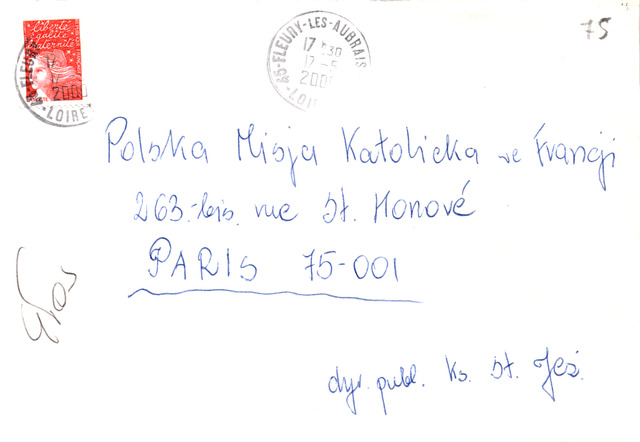 75
liberté
égalité
fraternité
45-FLEURY-LES-AUBRAIS
17 30
17-5
LOIRET
Polska Misja Katolicka we Francji
263-bis. rue St. Honoré
PARIS 75-001
Głos
dyr. publ. ks. St. Jeż.